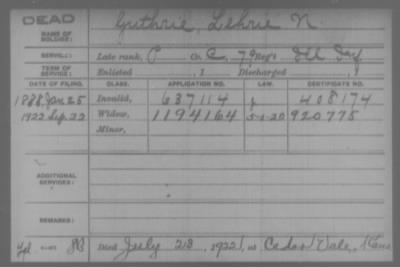 DEAD
NAME OF SOLDIER: Guthrie, Lehrie N.
SERVICE: Late rank, P Co. C, 79 Reg't Ill Inf.
TERM OF SERVICE: Enlisted , 1 Discharged , 1
DATE OF FILING. CLASS. APPLICATION NO. LAW. CERTIFICATE NO.
1888 Jan 25 Invalid, 637114 408174
1922 Sep. 22 Widow, 1194164 5-1-20 920775
Minor,
ADDITIONAL SERVICES:
REMARKS:
Died July 28, 1922, at Cedar Vale, Kans